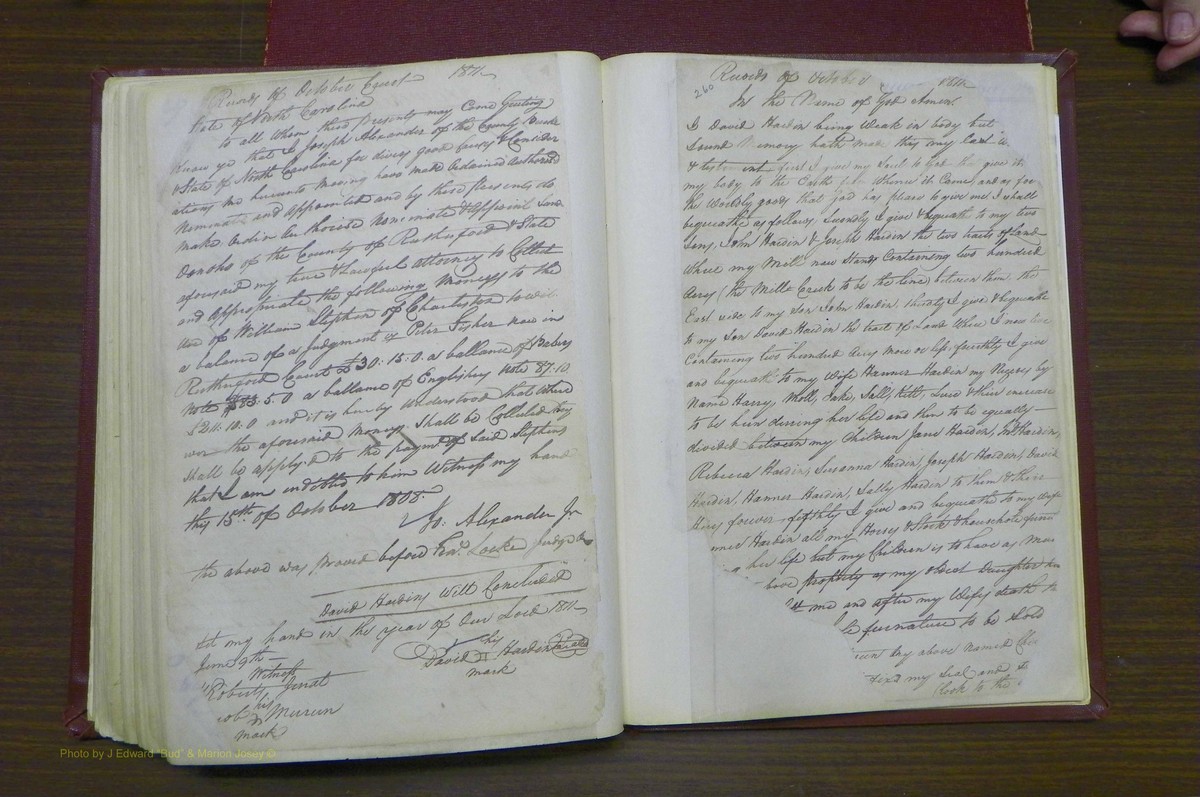 Records of October Court 1811
State of North Carolina
to all whom these presents may Come Greeting
Know ye that I Joseph Alexander of the County Burke
& State of North Carolina for divers good Causes & Consider
ations me hereunto Moving have made Ordained Authorised
Nominated and Appointed and by these presents do
make Ordain Authorised Nominate & Appoint
Donoho of the County of Rutherford & State
aforesaid my true & Lawful attorney to Collect
and Appropriate the following Moneys to the
use of William Stephen of Charleston to wit
a balance of a Judgment vs Peter Fisher now in
Rutherford Court $30.15.0 a ballance of
Note $33.5.0 a ballance of Note 87.10.
$211.10.0 and it is hereby understood that when
the aforesaid Money shall be Collected they
shall be applyed to the paymt of Said Stephens
that I am indebted to him Witness my hand
this 15th of October 1808
Jo. Alexander Jr
the above was proved before Locke Judge
David Hardins Will Concluded
Set my hand in the year of Our Lord 1811
June 9th his
Witness David Harden Seal
Robert mark
his
mark
260
Records of October 1811
In the Name of God Amen
I David Hardin being Weak in body but
Sound Memory hath made this my last
& testament first I give my Soul to God that give it
my body to the Earth from Whence it Came, and as for
the Worldly goods that god has please to give me I shall
bequeathe as follows, Secondly I give & bequeath to my two
Sons, John Hardin & Joseph Hardin the two tracts of Land
Where my Mill now Stands Containing two hundred
Acres (the Mill Creek to be the line) between them, the
East side to my Son John Hardin, thirdly I give & bequeathe
to my Son David Hardin the tract of Land Where I now live
Containing two hundred Acres More or less, fourthly I give
and bequeath to my Wife Hanner Harden my Negroes by
Name Harry, Moll, Jake, Sall, Kitt, & their increase
to be hern during her life and then to be equally
divided between my Children Jane Harden, Harden,
Rebecca Harden, Susanna Harden, Joseph Harden, David
Harden, Hanner Harden, Sally Harden to them & their
Heirs forever fifthly I give and bequeath to my wife
Hardin all my Horses & Stock & household
her life but my Children is to have as
property as my Oldest Daughter
me and after my Wifes death
furnature to be Sold
my above named
my Seal and
(look to the
Photo by J Edward "Bud" & Marion Josey ©